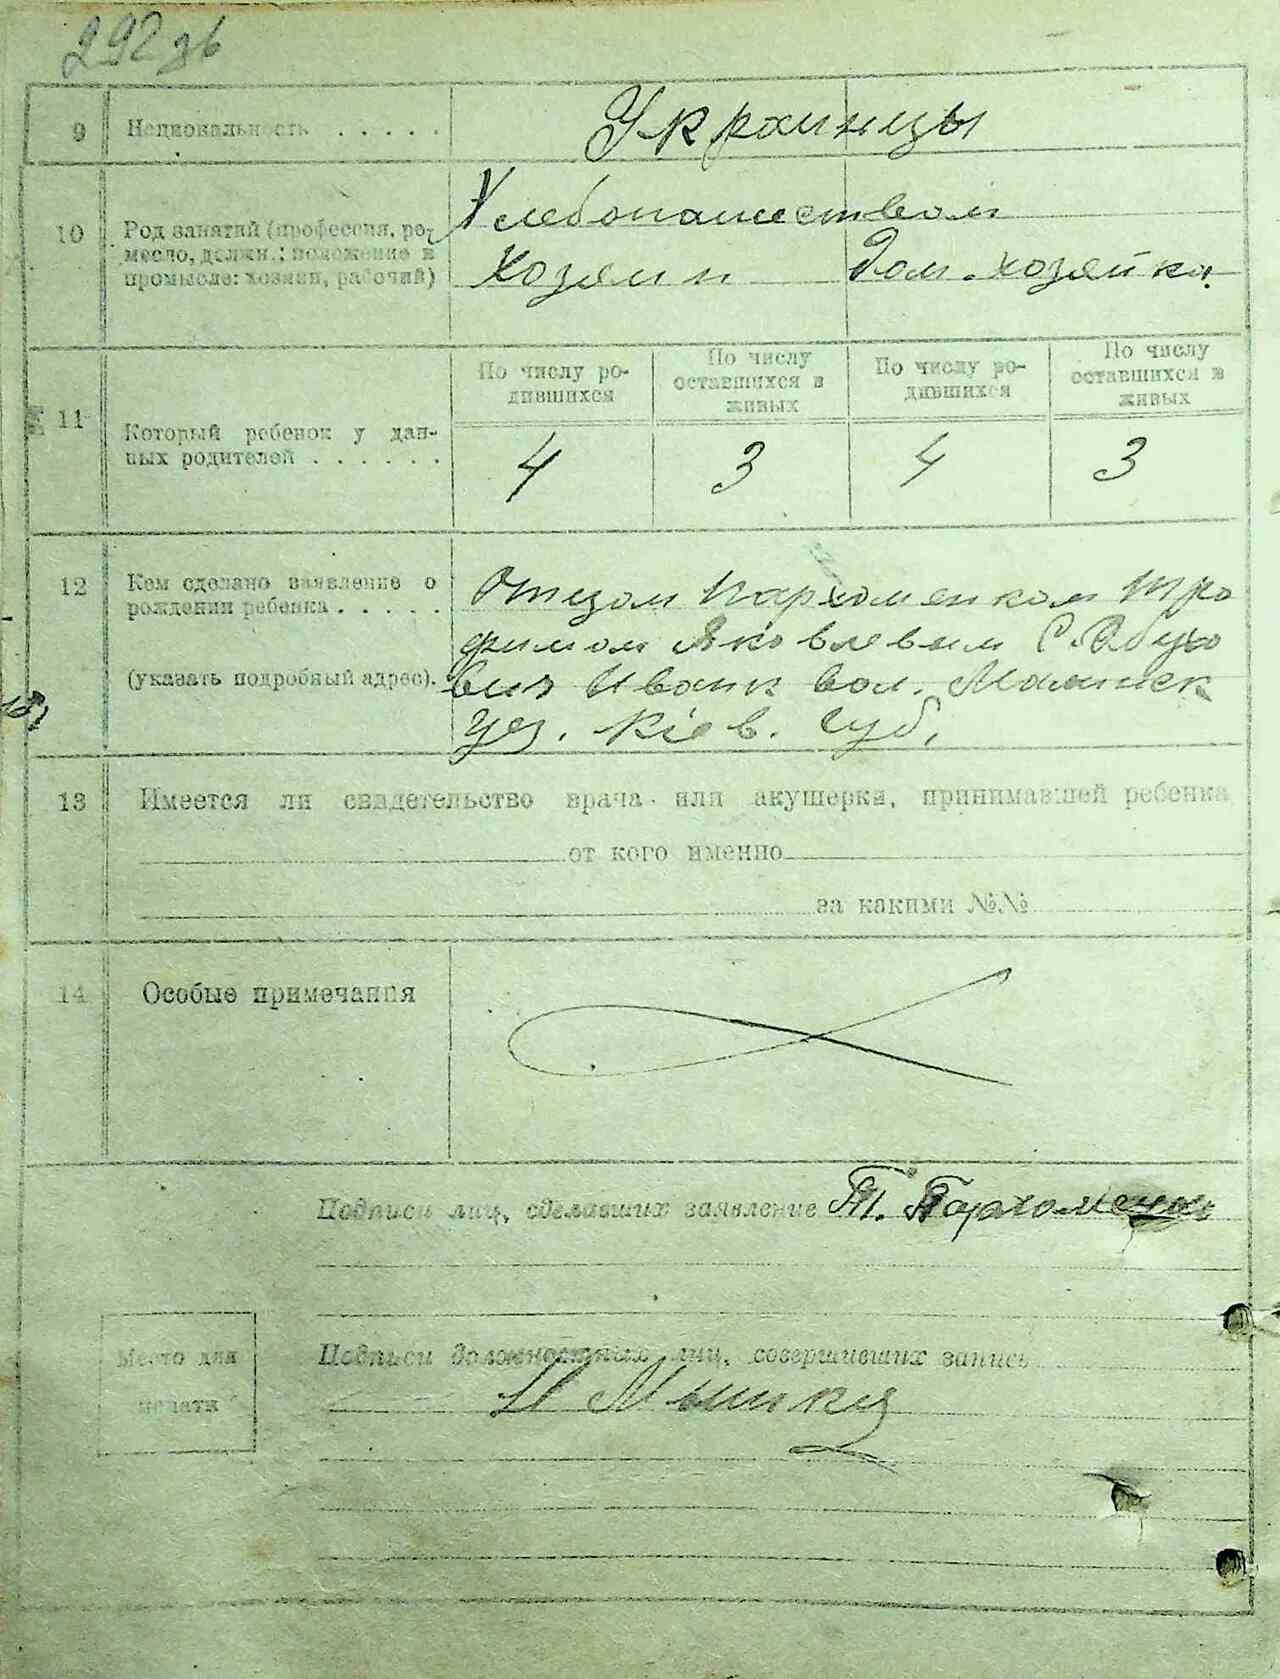 292 зв
9 Национальность . . . . . Украинцы
10 Род занятий (профессия, ре-
месло, должн.; положение в
промысле: хозяин, рабочий)
Хлебопашеством
Хозяин Дом. хозяйка.
По числу ро-
дившихся
По числу
оставшихся в
живых
По числу ро-
дившихся
По числу
оставшихся в
живых
11 Который ребенок у дан-
ных родителей . . . . . .
4 3 4 3
12 Кем сделано заявление о
рождении ребенка . . . . .
(указать подробный адрес).
Отцом Пархоменком Тро
фимом Яковлевым С.
Иванк вол.
уез. Кіев. Губ.
13 Имеется ли свидетельство врача или акушерки, принимавшей ребенка
от кого именно
за какими №№
14 Особые примечания
Подписи лиц, сделавших заявление Т. Пархоменко
Место для
печати
Подписи должностных лиц, совершивших запись